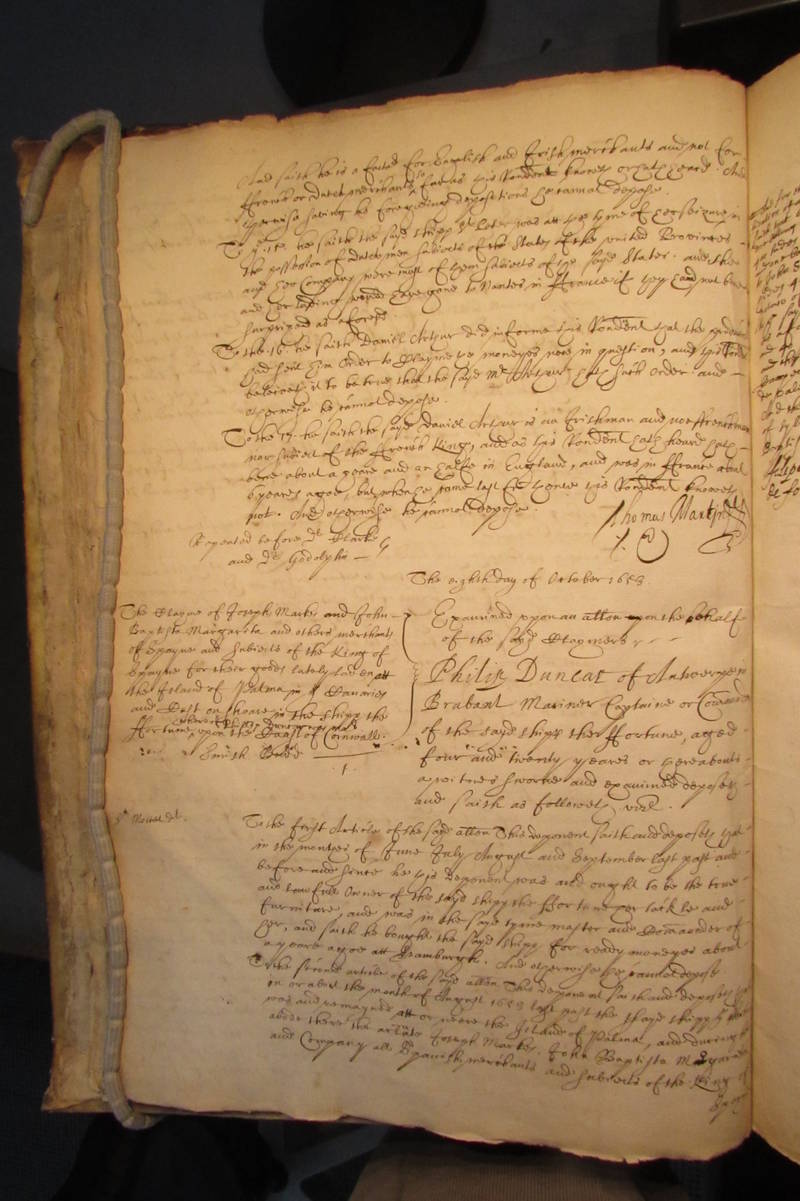 And saith hee is a factor for English and Irish merchants and not for
ffrench or dutch merchants so farr as this Rendent knowes or hath heard. And
otherwise saving his foregoeing depositions hee cannot depose.
To the 15. hee saith the sayd shipp St Peter was att the tyme of her seizure in
the possession of dutch men subiects of the States of the united Provinces
and her Company were most of them subiects of the sayd States. and she
and her lading would have gone to Nantes in ffrance if they had not bin
surprized as aforesd.
To the 16. hee saith Daniel Arthur did informe this Rendent that the
had sent him order to Clayme the moneyes now in question, and this Rendt
beleeveth it to be true that the sayd Mr Arthur hath such order and
otherwise he cannot depose.
To the 17. he saith the sayd Daniel Arthur is an Irishman and no ffrenchman
nor subiect of the ffrench King, and as this Rendent hath heard hath
bene about a yeare and an halfe in England, and was in ffrance about
6 yeares agoe, but whence came last hee knowes this Rendent knowes
not. And otherwise he cannot depose.
Thomas Martin
Repeated before Dr Clarke
and Dr Godolphin
The eighth day of October 1653.
The Clayme of Joseph Markes and John
Baptista Margareta and others merchants
of Spayne and subiects of the King of
Spayne for their goods lately laden att
the Island of Palma in the Canaries
and lost on board in the shipp the
ffortune, whereof Philip Duncat was Mr
upon the Coast of Cornwall.
Smith Budd
Examined upon an allon upon the behalfe
of the sayd Claymers
Philip Duncat of Antwerpe in
Brabant Mariner Captaine or Comander
of the sayd shipp the ffortune, aged
four and twenty yeares or thereabouts
a witnes sworne and examined deposeth
and saith as followeth, vizt.
To the first Article of the sayd allon This deponent saith and deposeth that
in the monthes of June July August and September last past and
before and since he this deponent was and ought to be the true
and lawfull Owner of the sayd shipp the ffortune her tackle and
furniture, and was in the sayd tyme master and Comander of
her, and saith he bought the sayd shipp for ready moneyes about
a yeare agoe att Hamburgh. And otherwise he cannot depose
To the second article of the sayd allon This deponent saith and deposeth that
in or about the month of August 1653 last past the sayd shipp the ffortune
was and remayned att or neere the Island of Palma, and during her
abode there the arlate Joseph Markes, John Baptista Margareta
and Company all Spanish merchants and subiects of the King of
Spayne